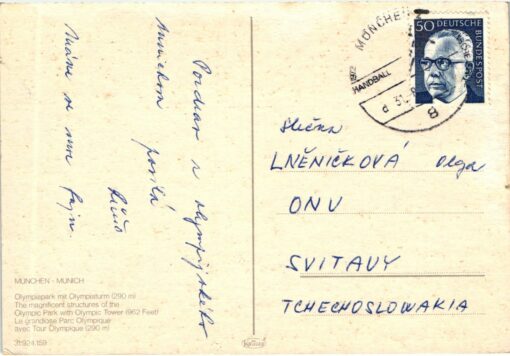 Pozdrav z olympijského
Mnichova
posílá
Máme se moc fajn.
MÜNCHEN - MUNICH
Olympiapark mit Olympiaturm (290 m)
The magnificent structures of the
Olympic Park with Olympic Tower (962 Feet)
Le grandiose Parc Olympique
avec Tour Olympique (290 m)
31.924.159
Krüger
MÜNCHEN
1972
HANDBALL
d 31.
8
50 DEUTSCHE
BUNDESPOST
Slečna
LNĚNIČKOVÁ Olga
ONV
SVITAVY
TCHECHOSLOWAKIA